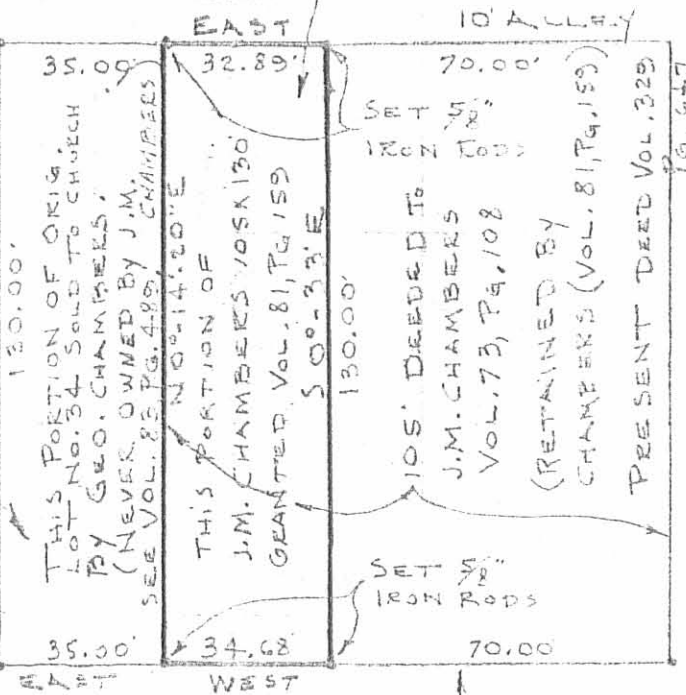 EAST
10' ALLEY
35.00'
32.89'
70.00'
SET 5/8"
IRON RODS
130.00'
THIS PORTION OF ORIG.
LOT NO. 34 SOLD TO CHURCH
BY GEO. CHAMBERS.
(NEVER OWNED BY J.M. CHAMBERS
SEE VOL. 83 PG. 489)
N.0°-14'-20"E
THIS PORTION OF
J.M. CHAMBERS 105X130'
GRANTED VOL. 81, PG 159
S 0°-33' E
130.00'
105' DEEDED TO
J.M. CHAMBERS
VOL. 73, PG. 108
(RETAINED BY
CHAMBERS (VOL. 81, PG. 159)
PRESENT DEED VOL. 329
PG 647
SET 5/8"
IRON RODS
35.00'
34.68'
70.00
EAST
WEST